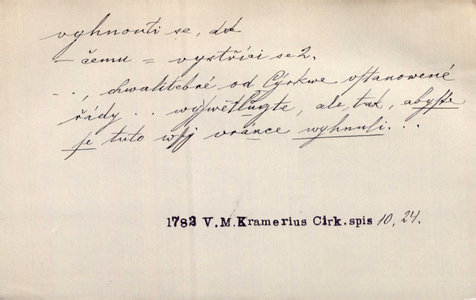 vyhnouti se, dok
– čemu = vystříci se 2.
– ., chwalitebné od Cýrkwe vstanovené
řády . . wyswětlugte, ale tak, abyste
se tuto wssj vránce wyhnuli. . .
1782 V.M.Kramerius Cirk.spis 10, 24.